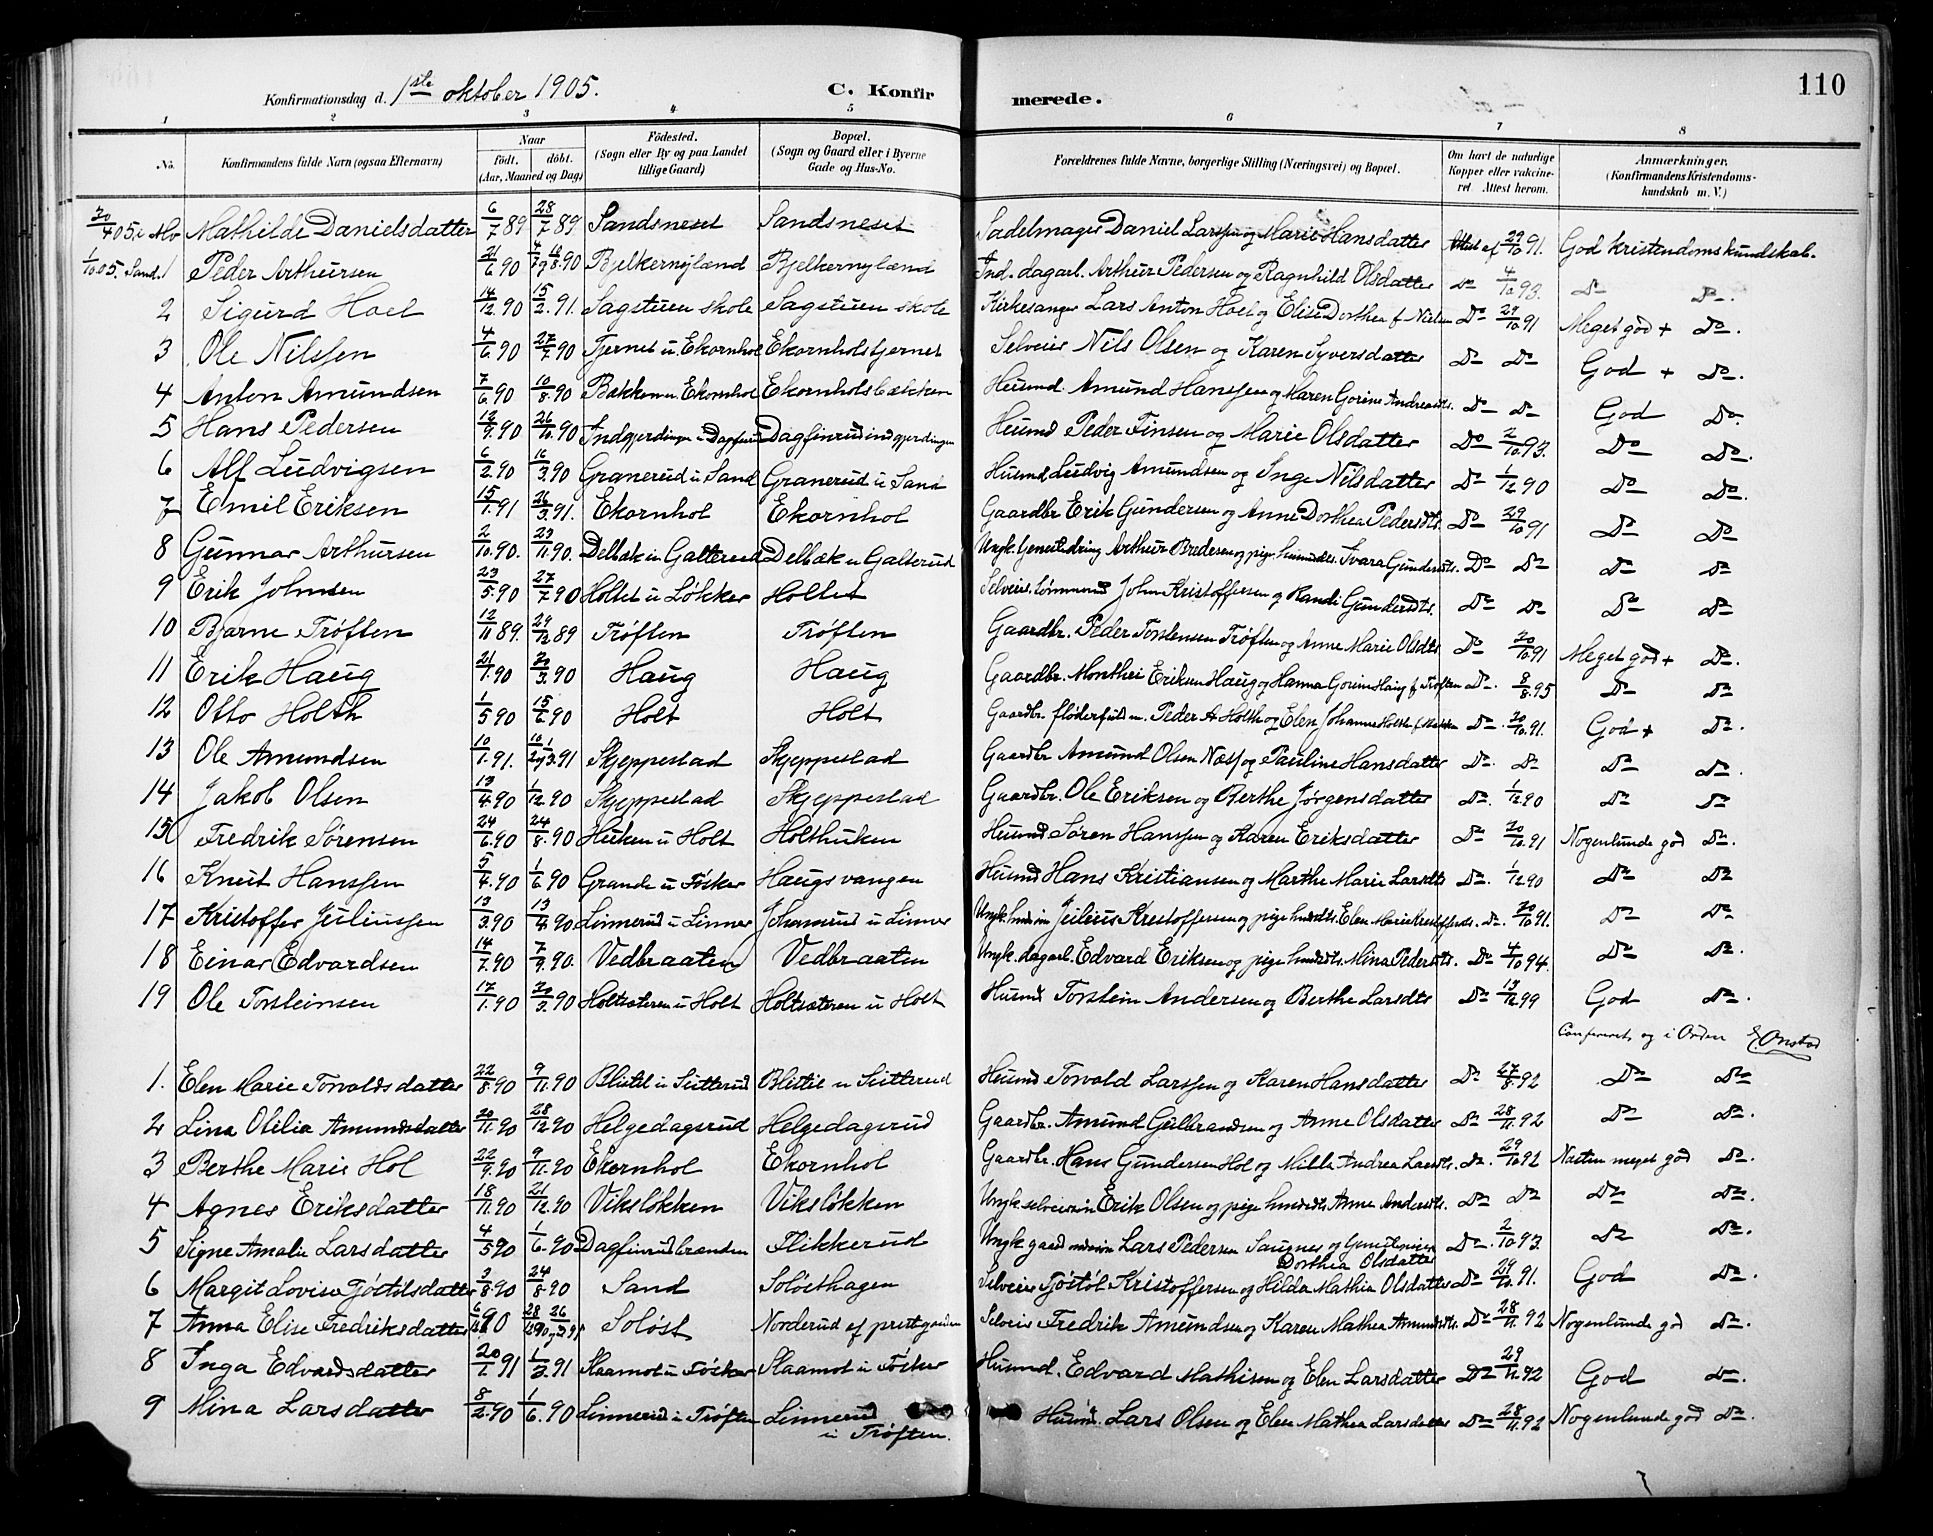 110
Konfirmationsdag d. 1ste oktober 1905. C. Konfirmerede.
1 2 3 4 5 6 7 8
No. Konfirmandens fulde Navn (ogsaa Efternavn) Naar födt. döbt. (Aar, Maaned og Dag) Födested. (Sogn eller By og paa Landet tillige Gaard) Bopæl. (Sogn og Gaard eller i Byerne Gade og Hus-No. Forældrenes fulde Navne, borgerlige Stilling (Næringsvei) og Bopæl. Om havt de naturlige Kopper eller vaccineret. Attest herom. Anmærkninger, (Konfirmandens Kristendomskundskab m. V.)
Mathilde Danielsdatter 6/7 89 28/7 89 Sandsneset Sandsneset Sadelmager Daniel Larssen og Marie Hansdatter Attest af 29/10 91. God kristendomskundskab.
1/10 05. Sand. 1 Peder Arthursen 21/6 90 Bjelkernyland Bjelkernyland Ind. dagarb. Arthur Pedersen og Ragnhild Olsdatter Do 4/10 93. Do Do.
2 Sigurd Hoel 14/12 90 15/2 91. Sagstuen skole Sagstuen skole Kirkesanger Lars Anton Hoel og Elise Dorthea f. Nielsen Do 29/10 91 Meget god + Do.
3 Ole Nilssen 4/6 90 27/7 90 Tjernet u. Ekornhol Ekornholstjernet Selveier Nils Olsen og Karen Syversdatter Do Do God + Do.
4 Anton Amundsen 7/6 90 10/8 90 Bakken u. Ekornhol Ekornholsbakken Husmd. Amund Hanssen og Karen Gorine Andreasdts. Do Do God Do.
5 Hans Pedersen 12/9 90 26/10 90 Indgjerdingen u. Dagfinrud Dagfinrudindgjerdingen Husmd Peder Finsen og Marie Olsdatter Do 2/10 93. Do Do.
6 Alf Ludvigsen 6/2 90 16/3 90 Granerud u Sand Granerud u Sand Husmd Ludvig Amundsen og Inge Nilsdatter Do 1/12 90 Do Do.
7 Emil Eriksen 15/1. 91 26/3 91. Ekornhol Ekornhol Gaardbr Erik Gundersen og Anne Dorthea Pedersdts. Do 29/10 91 Do Do
8 Gunnar Arthursen 2/10. 90. 23/11. 90. Delbæk u Galterud Delbæk u Galterud Arthur Bredesen og pige Gundersdts. Do Do Do Do
9 Erik Johnsen 23/5. 90 27/7 90 Holtet u Løkker Holtet John Kristoffersen og Randi Gundersdts. Do Do Do Do
10 Bjarne Trøften 12/11 89. 29/12 89 Trøften Trøften Gaardbr. Peder Torstensen Trøften og Anne Marie Olsdts Do 20/10 91 Meget god + Do.
11 Erik Haug 21/1. 90 30/3. 90 Haug Haug Gaardbr. Monthei Eriksen Haug og Hanna Gorine Haug f. Trøften Do. 8/8. 95 Do Do
12 Otto Holth 1/5 90 15/6 90 Holt Holt Gaardbr. Peder A Holth og Elen Johanne Holth Do. 20/10 91. God + Do.
13 Ole Amundsen 10/1. 91. Skjeppestad Skjeppestad Gaardbr Amund Olsen Næss og Pauline Hansdatter Do. Do Do Do.
14 Jakob Olsen 13/4. 90 1/12. 90 Skjeppestad Skjeppestad Gaardbr. Ole Eriksen og Berthe Jørgensdatter Do. 1/12. 90 Do Do
15 Fredrik Sørensen 24/6. 90 24/8. 90 Huken u Holt Holthuken Husmd Søren Hanssen og Karen Eriksdatter Do 20/10. 91 Nogenlunde god Do.
16 Knut Hanssen 5/4. 90 1/6. 90 Grande u Fosker Haugsvangen Husmd Hans Kristiansen og Marthe Marie Larsdts Do. 1/12. 90 Do Do
17 Kristoffer Juliussen 13/3. 90 13/4. 90 Linnerud u Linner Johnsrud u Linner Julius Kristoffersen og pige Elen Marie Kristoffersdts. Do. 20/10 91. Do Do
18 Einar Edvardsen 14/7. 90 7/9. 90. Vedbraaten Vedbraaten Ungk. dagarb. Edvard Eriksen og pige husmdts. Mina Pedersdts. Do 4/10 94. Do Do.
19 Ole Torsteinsen 17/1. 90 30/3. 90 Holtsæteren u Holt Holtsæteren u Holt Husmd Torstein Andersen og Berthe Larsdts Do 13/11 99 God Do.
Confereret og i Orden E. Onstad
1. Elen Marie Torvaldsdatter 22/8. 90 9/11. 90 Blistil u Sutterud Blistil u Sutterud Husmd Torvald Larssen og Karen Hansdatter Do 27/8. 92 Do Do
2 Lina Otilia Amundsdatter 20/11. 90 28/12 90 Helgedagsrud Helgedagsrud Gaardbr. Amund Gulbrandsen og Anne Olsdatter Do 28/11. 92 Do Do.
3 Berthe Marie Hol 22/9. 90 9/11. 90 Ekornhol Ekornhol Gaardbr. Hans Gundersen Hol og Milla Andrea Larsdts. Do. 29/10 92 Næsten meget god Do.
4 Agnes Eriksdatter 18/11. 90 21/12. 90 Vikslökken Vikslökken Ungk. selveiersøn Erik Olsen og pige husmdts Anne Andersdts Do Do Do Do.
5 Signe Amalie Larsdatter 4/5 90 1/6. 90 Dagfinrudbranden Flikkerud Ungk Lars Pedersen Saugnes og Dorthea Olsdatter Do. 2/10 93. Do Do.
6 Margit Lovise Tjöstölsdatter 3/8. 90 24/8. 90 Sand Solösthagen Selveier Tjöstöl Kristoffersen og Hilda Mathia Olsdatter Do 29/10. 91. God Do.
7 Anna Elise Fredriksdatter Solöst Norderud af prestgaarden Selveier Fredrik Amundsen og Karen Mathea Amundsdts. Do 28/11. 92 Nogenlunde god Do.
8 Inga Edvardsdatter 20/1. 91 1/3. 91 Slaamot u Fosker Slaamot u Fosker Husmd. Edvard Mathisen og Elen Larsdatter Do 29/11. 92 God Do.
9 Mina Larsdatter 8/2. 90 1/6. 90 Linnerud u Trøften Linnerud u Trøften. Husmd. Lars Olsen og Elen Mathea Larsdatter Do 28/11. 92 Nogenlunde god Do.